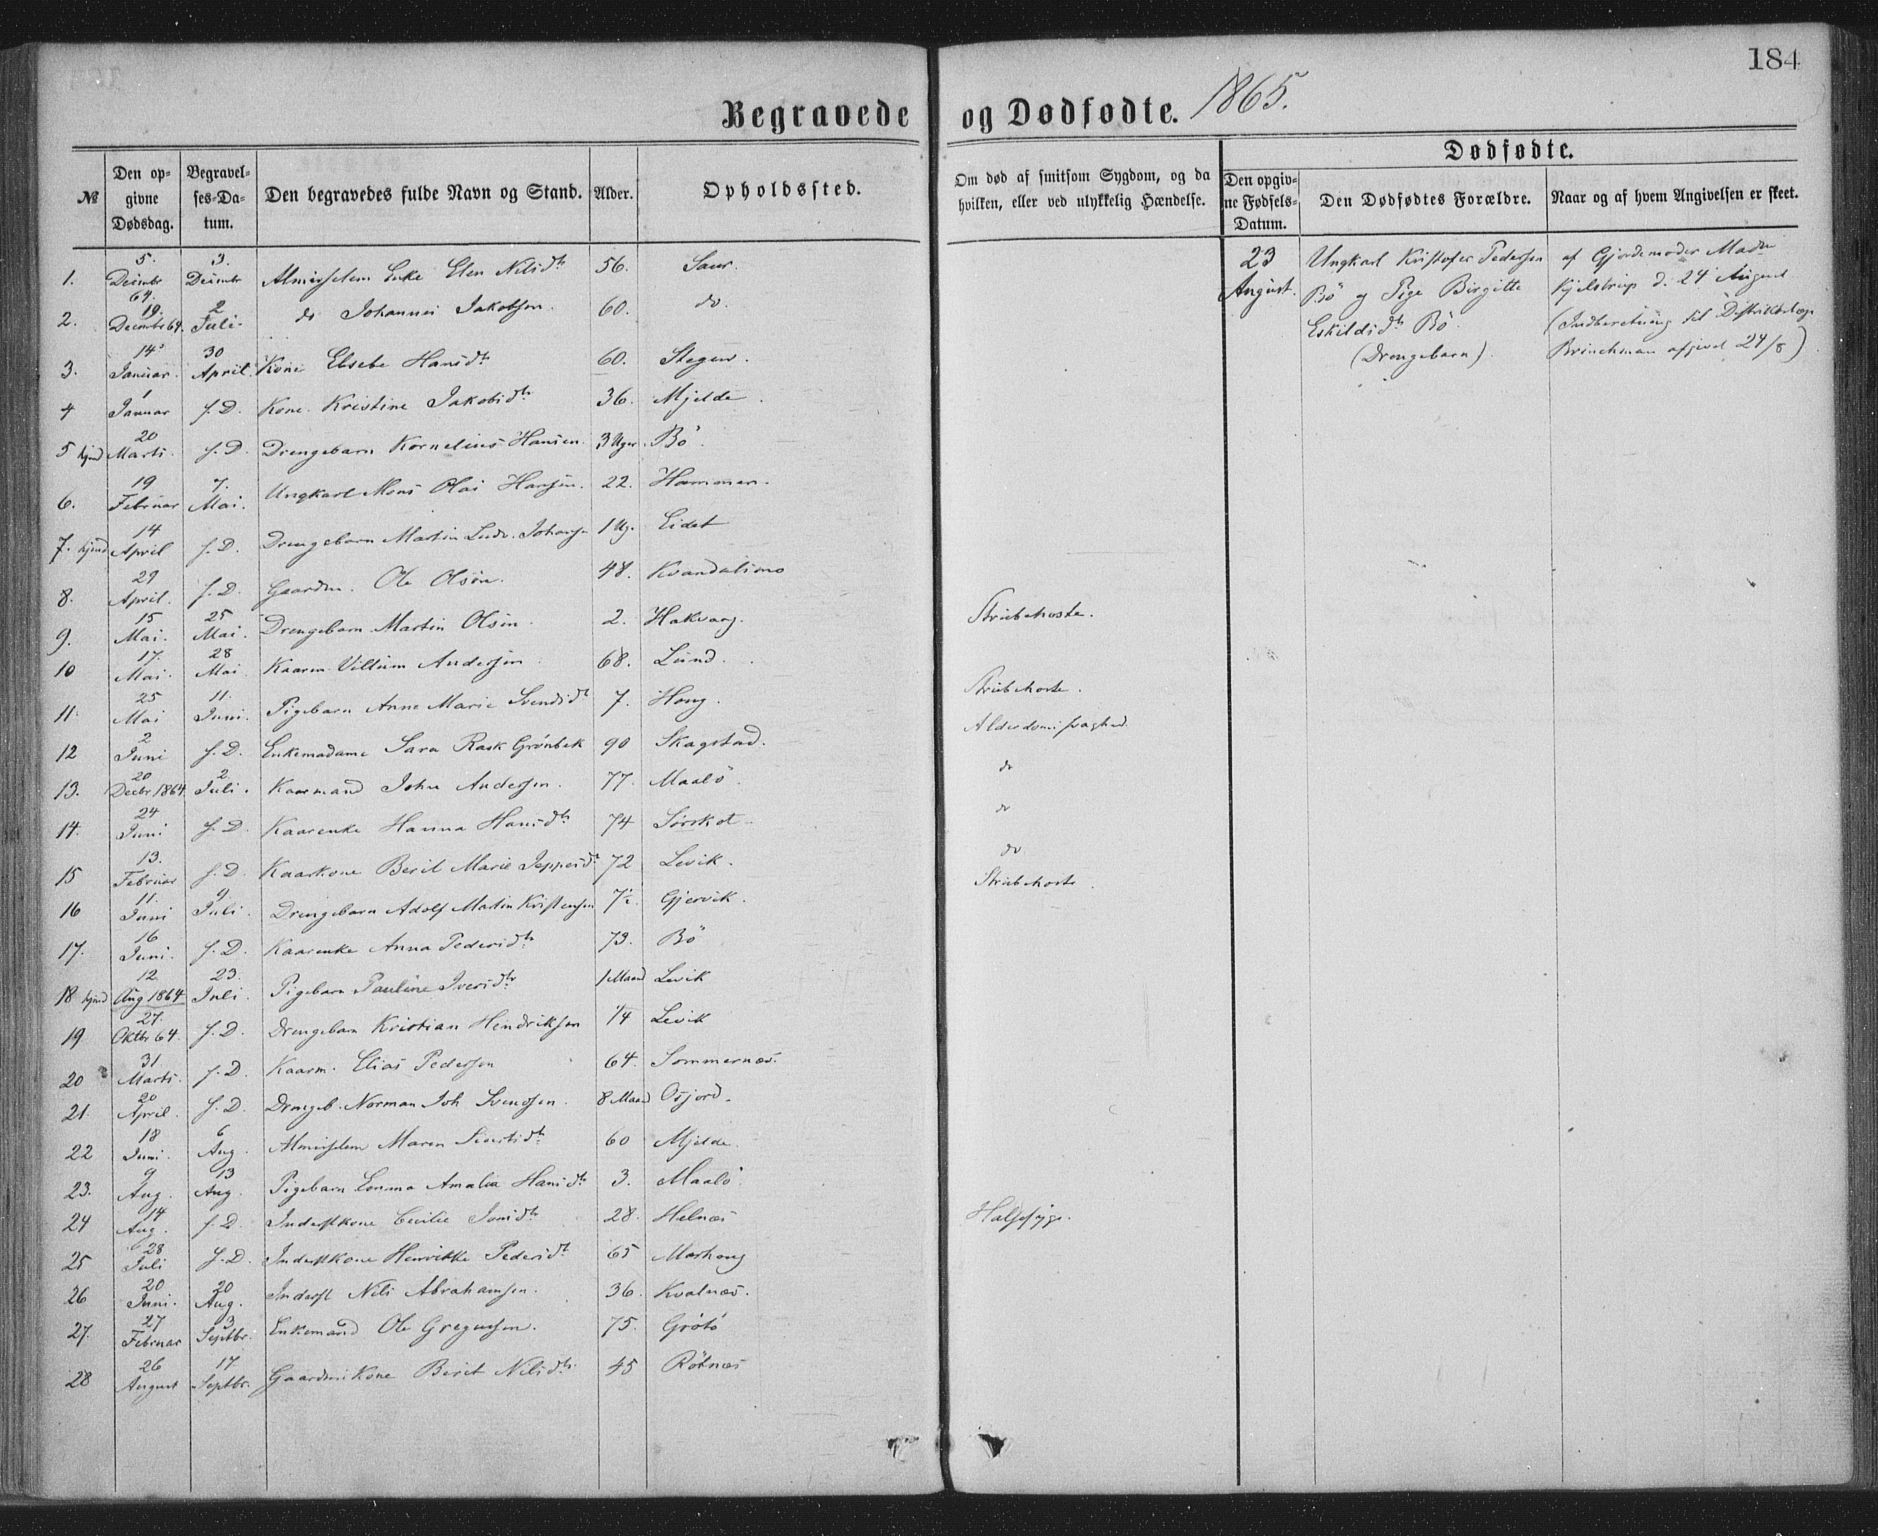 184
Begravede og Dødfødte. 1865.
№ Den opgivne Dødsdag. Begravelses-Datum. Den begravedes fulde Navn og Stand. Alder. Opholdssted. Om død af smitsom Sygdom, og da hvilken, eller ved ulykkelig Hændelse.
Dødfødte.
Den opgivne Fødsels-Datum. Den Dødfødtes Forældre. Naar og af hvem Angivelsen er skeet.
1. 5. Decmbr 64. 3. Decmbr Almisselem Enke Elen Nilsdtr 56. Saur.
2. 19 Decmbr 64. 2 Juli. do Johannes Jakobsen. 60. do.
3. 14 Januar. 30 April. Kone Elsebe Hansdtr 60. Stegen.
4 1 Januar s. D. Kone. Kristine Jakobsdtr 36. Mjelde.
5 hjmd 20 Marts. s. D. Drengebarn Kornelius Hansen. 3 Uger. Bö.
6. 19 Februar 7. Mai. Ungkarl Mons Olai Hansen. 22. Hammer.
7. hjmd 14 April s. D. Drengebarn Martin Ludv. Johansen 1 Ug. Eidet
8. 29 April. s. D. Gaardm. Ole Olsön. 48.
9. 15 Mai. 25 Mai. Drengebarn Martin Olsen. 2. Hakvaag. Strubehoste.
10 17. Mai. 28 Mai. Kaarm. Villum Andersen. 68. Lund.
11. 25 Mai 11. Juni. Pigebarn Anne Marie Svendsdtr 7. Haug. Strubehoste.
12 2 Juni s. D. Enkemadame Sara Rask Grönbek 90 Skagstad. Alderdomssvaghed.
13. 20 Decbr 1864 2 Juli. Kaarmand John Andersen. 77. Maalö. do
14. 24 Juni s. D. Kaarenke Hanna Hansdtr 74 Sörskot. do
15 13. Februar s. D. Kaarkone Berit Marie Jeppesdtr 72 Levik. do
16 11. Juni 9 Juli. Drengebarn Adolf Martin Kristensen 7½ Gjervik. Strubehoste.
17. 16 Juni. s. D. Kaarenke Anna Pedersdtr 73. Bö
18 hjmd 12. Aug 1864 23. Juli. Pigebarn Pauline Iversdtr 1 Maaned Levik
19 27. Oktbr 64. s. D. Drengebarn Kristian Hendriksen ¼ Levik
20 31 Marts. s. D. Kaarm. Elias Pedersen 64. Sommernæs.
21. 20 April. s. D. Drengeb. Norman Joh Svendsen. 8 Maaned Osjord.
22 18 Juni. 6 Aug. Almisselem Maren Siversdtr 60 Mjelde.
23. 9 Aug. 13 Aug. Pigebarn Emma Amalia Hansdtr 3. Maalö.
24 14 Aug. s. D. Inderstkone Cecilie 28. Helnæs Halssyge.
25 28 Juli s. D. Inderstkone Henrikke Pedersdtr 65 Morhaug
26 20 Juni. 20 Aug. Inderst Nils Abrahamsen. 36. Kvalnæs.
27. 27 Februar 3 Septbr. Enkemand Ole Gregusen. 75. Grötö
28 26 August 17. Septbr. Gaardmkone Berit Nilsdtr 45 Rötnæs
23 August. Ungkarl Kristofer Pedersen
Bö og Pige Birgitte
Eskildsdtr Bö.
(Drengebarn).
af Gjordemoder Madm
Kjelstrup d. 24 August
(Indberetning til Distriktslæge
Brinchman afgivet 29/8)